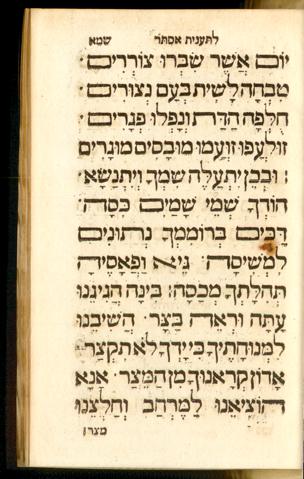 לתענית אסתר שמא
יום אשר שברו צוררים.
טבחה לשית בעם נצורים.
חלפה הדת ונפלו פגרים.
זולעפו זועמו מובסים מוגרים
: ובכן יתעלה שמך ויתנשא
הודך שמי שמים כסה.
דכים ברוממך נתונים
למשיסה. גיא ואפאסיה
תהלתך מכסה: בינה הגיגנו
עתה וראה בצר. השיבנו
למנוחתיך כי ידך לא תקצר.
אדון קראנוך מן המצר. אנא
הוציאנו למרחב וחלצנו
מצר: